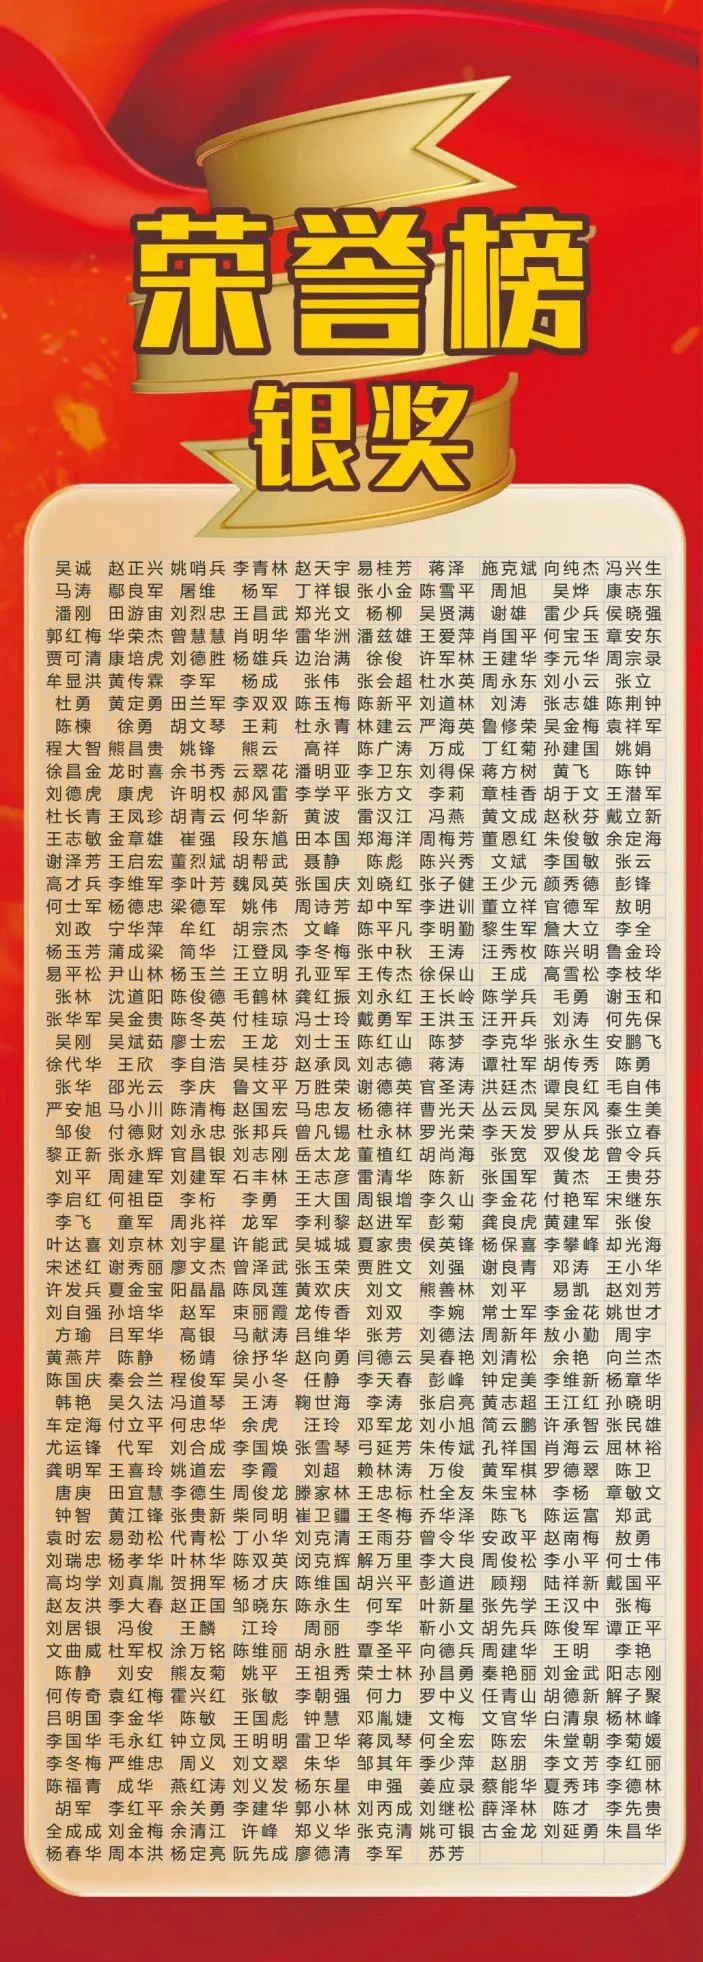 荣誉榜
银奖
吴诚 赵正兴 姚哨兵 李青林 赵天宇 易桂芳 蒋泽 施克斌 向纯杰 冯兴生
马涛 鄢良军 屠维 杨军 丁祥银 张小金 陈雪平 周旭 吴烨 康志东
潘刚 田游宙 刘烈忠 王昌武 郑光文 杨柳 吴贤满 谢雄 雷少兵 侯晓强
郭红梅 华荣杰 曾慧慧 肖明华 雷华洲 潘兹雄 王爱萍 肖国平 何宝玉 章安东
贾可清 康培虎 刘德胜 杨雄兵 边治满 徐俊 许军林 王建华 李元华 周宗录
牟显洪 黄传霖 李军 杨成 张伟 张会超 杜水英 周永东 刘小云 张立
杜勇 黄定勇 田兰军 李双双 陈玉梅 陈新平 刘道林 刘涛 张志雄 陈荆钟
陈楝 徐勇 胡文琴 王莉 杜永青 林建云 严海英 鲁修荣 吴金梅 袁祥军
程大智 熊昌贵 姚锋 熊云 高祥 陈广涛 万成 丁红菊 孙建国 姚娟
徐昌金 龙时喜 余书秀 云翠花 潘明亚 李卫东 刘得保 蒋方树 黄飞 陈钟
刘德虎 康虎 许明权 郝风雷 李学平 张方文 李莉 章桂香 胡于文 王潜军
杜长青 王凤珍 胡青云 何华新 黄波 雷汉江 冯燕 黄文成 赵秋芬 戴立新
王志敏 金章雄 崔强 段东尴 田本国 郑海洋 周梅芳 董恩红 朱俊敏 余定海
谢泽芳 王启宏 董烈斌 胡帮武 聂静 陈彪 陈兴秀 文斌 李国敏 张云
高才兵 李维军 李叶芳 魏凤英 张国庆 刘晓红 张子健 王少元 颜秀德 彭锋
何士军 杨德忠 梁德军 姚伟 周诗芳 却中军 李进训 董立祥 官德军 敖明
刘政 宁华萍 牟红 胡宗杰 文峰 陈平凡 李明勤 黎生军 詹大立 李全
杨玉芳 蒲成梁 简华 江登凤 李冬梅 张中秋 王涛 汪秀枚 陈兴明 鲁金玲
易平松 尹山林 杨玉兰 王立明 孔亚军 王传杰 徐保山 王成 高雪松 李枝华
张林 沈道阳 陈俊德 毛鹤林 龚红振 刘永红 王长岭 陈学兵 毛勇 谢玉和
张华军 吴金贵 陈冬英 付桂琼 冯士玲 戴勇军 王洪玉 汪开兵 刘涛 何先保
吴刚 吴斌茹 廖士宏 王龙 刘士玉 陈红山 陈梦 李克华 张永生 安鹏飞
徐代华 王欣 李自浩 吴桂芬 赵承凤 刘志德 蒋涛 谭社军 胡传秀 陈勇
张华 邵光云 李庆 鲁文平 万胜荣 谢德英 官圣涛 洪廷杰 谭良红 毛自伟
严安旭 马小川 陈清梅 赵国宏 马忠友 杨德祥 曹光天 丛云凤 吴东风 秦生美
邹俊 付德财 刘永忠 张邦兵 曾凡锡 杜永林 罗光荣 李天发 罗从兵 张立春
黎正新 张永辉 官昌银 刘志刚 岳太龙 董植红 胡尚海 张宽 双俊龙 曾令兵
刘平 周建军 刘建军 石丰林 王志彦 雷清华 陈新 张国军 黄杰 王贵芬
李启红 何祖臣 李桁 李勇 王大国 周银增 李久山 李金花 付艳军 宋继东
李飞 童军 周兆祥 龙军 李利黎 赵进军 彭菊 龚良虎 黄建军 张俊
叶达喜 刘京林 刘宇星 许能武 吴城城 夏家贵 侯英锋 杨保喜 李攀峰 却光海
宋述红 谢秀丽 廖文杰 曾泽武 张玉荣 贾胜文 刘强 谢良青 邓涛 王小华
许发兵 夏金宝 阳晶晶 陈凤莲 黄欢庆 刘文 熊善林 刘平 易凯 赵刘芳
刘自强 孙培华 赵军 束丽霞 龙传香 刘双 李婉 常士军 李金花 姚世才
方瑜 吕军华 高银 马献涛 吕维华 张芳 刘德法 周新年 敖小勤 周宇
黄燕芹 陈静 杨靖 徐抒华 赵向勇 闫德云 吴春艳 刘清松 余艳 向兰杰
陈国庆 秦会兰 程俊军 吴小冬 任静 李天春 彭峰 钟定美 李维新 杨章华
韩艳 吴久法 冯道琴 王涛 鞠世海 李涛 张启亮 黄志超 王江红 孙晓明
车定海 付立平 何忠华 余虎 汪玲 邓军龙 刘小旭 简云鹏 许承智 张民雄
尤运锋 代军 刘合成 李国焕 张雪琴 弓延芳 朱传斌 孔祥国 肖海云 屈林裕
龚明军 王喜玲 姚道宏 李霞 刘超 赖林涛 万俊 黄军棋 罗德翠 陈卫
唐庚 田宜慧 李德生 周俊龙 滕家林 王忠标 杜全友 朱宝林 李杨 章敏文
钟智 黄江锋 张贵新 柴同明 崔卫疆 王冬梅 乔华泽 陈飞 陈运富 郑武
袁时宏 易劲松 代青松 丁小华 刘克清 王雨芬 曾令华 安政平 赵南梅 敖勇
刘瑞忠 杨孝华 叶林华 陈双英 闵克辉 解万里 李大良 周俊松 李小平 何士伟
高均学 刘真胤 贺拥军 杨才庆 陈维国 胡兴平 彭道进 顾翔 陆祥新 戴国平
赵友洪 季大春 赵正国 邹晓东 陈永生 何军 叶新星 张先学 王汉中 张梅
刘居银 冯俊 王麟 江玲 周丽 李华 靳小文 胡先兵 陈俊军 谭正平
文曲威 杜军权 涂万铭 陈维丽 胡永胜 覃圣平 向德兵 周建华 王明 李艳
陈静 刘安 熊友菊 姚平 王祖秀 荣士林 孙昌勇 秦艳丽 刘金武 阳志刚
何传奇 袁红梅 霍兴红 张敏 李朝强 何力 罗中义 任青山 胡德新 解子聚
吕明国 李金华 陈敏 王国彪 钟慧 邓胤婕 文梅 文官华 白清泉 杨林峰
李国华 毛永红 钟立凤 王明明 雷卫华 蒋凤琴 何全宏 陈宏 朱堂朝 李菊媛
李冬梅 严维忠 周义 刘文翠 朱华 邹其年 季少萍 赵朋 李文芳 李红丽
陈福青 成华 燕红涛 刘义发 杨东星 申强 姜应录 蔡能华 夏秀玮 李德林
胡军 李红平 余关勇 李建华 郭小林 刘丙成 刘继松 薛泽林 陈才 李先贵
全成成 刘金梅 余清江 许峰 郑义华 张克清 姚可银 古金龙 刘延勇 朱昌华
杨春华 周本洪 杨定亮 阮先成 廖德清 李军 苏芳